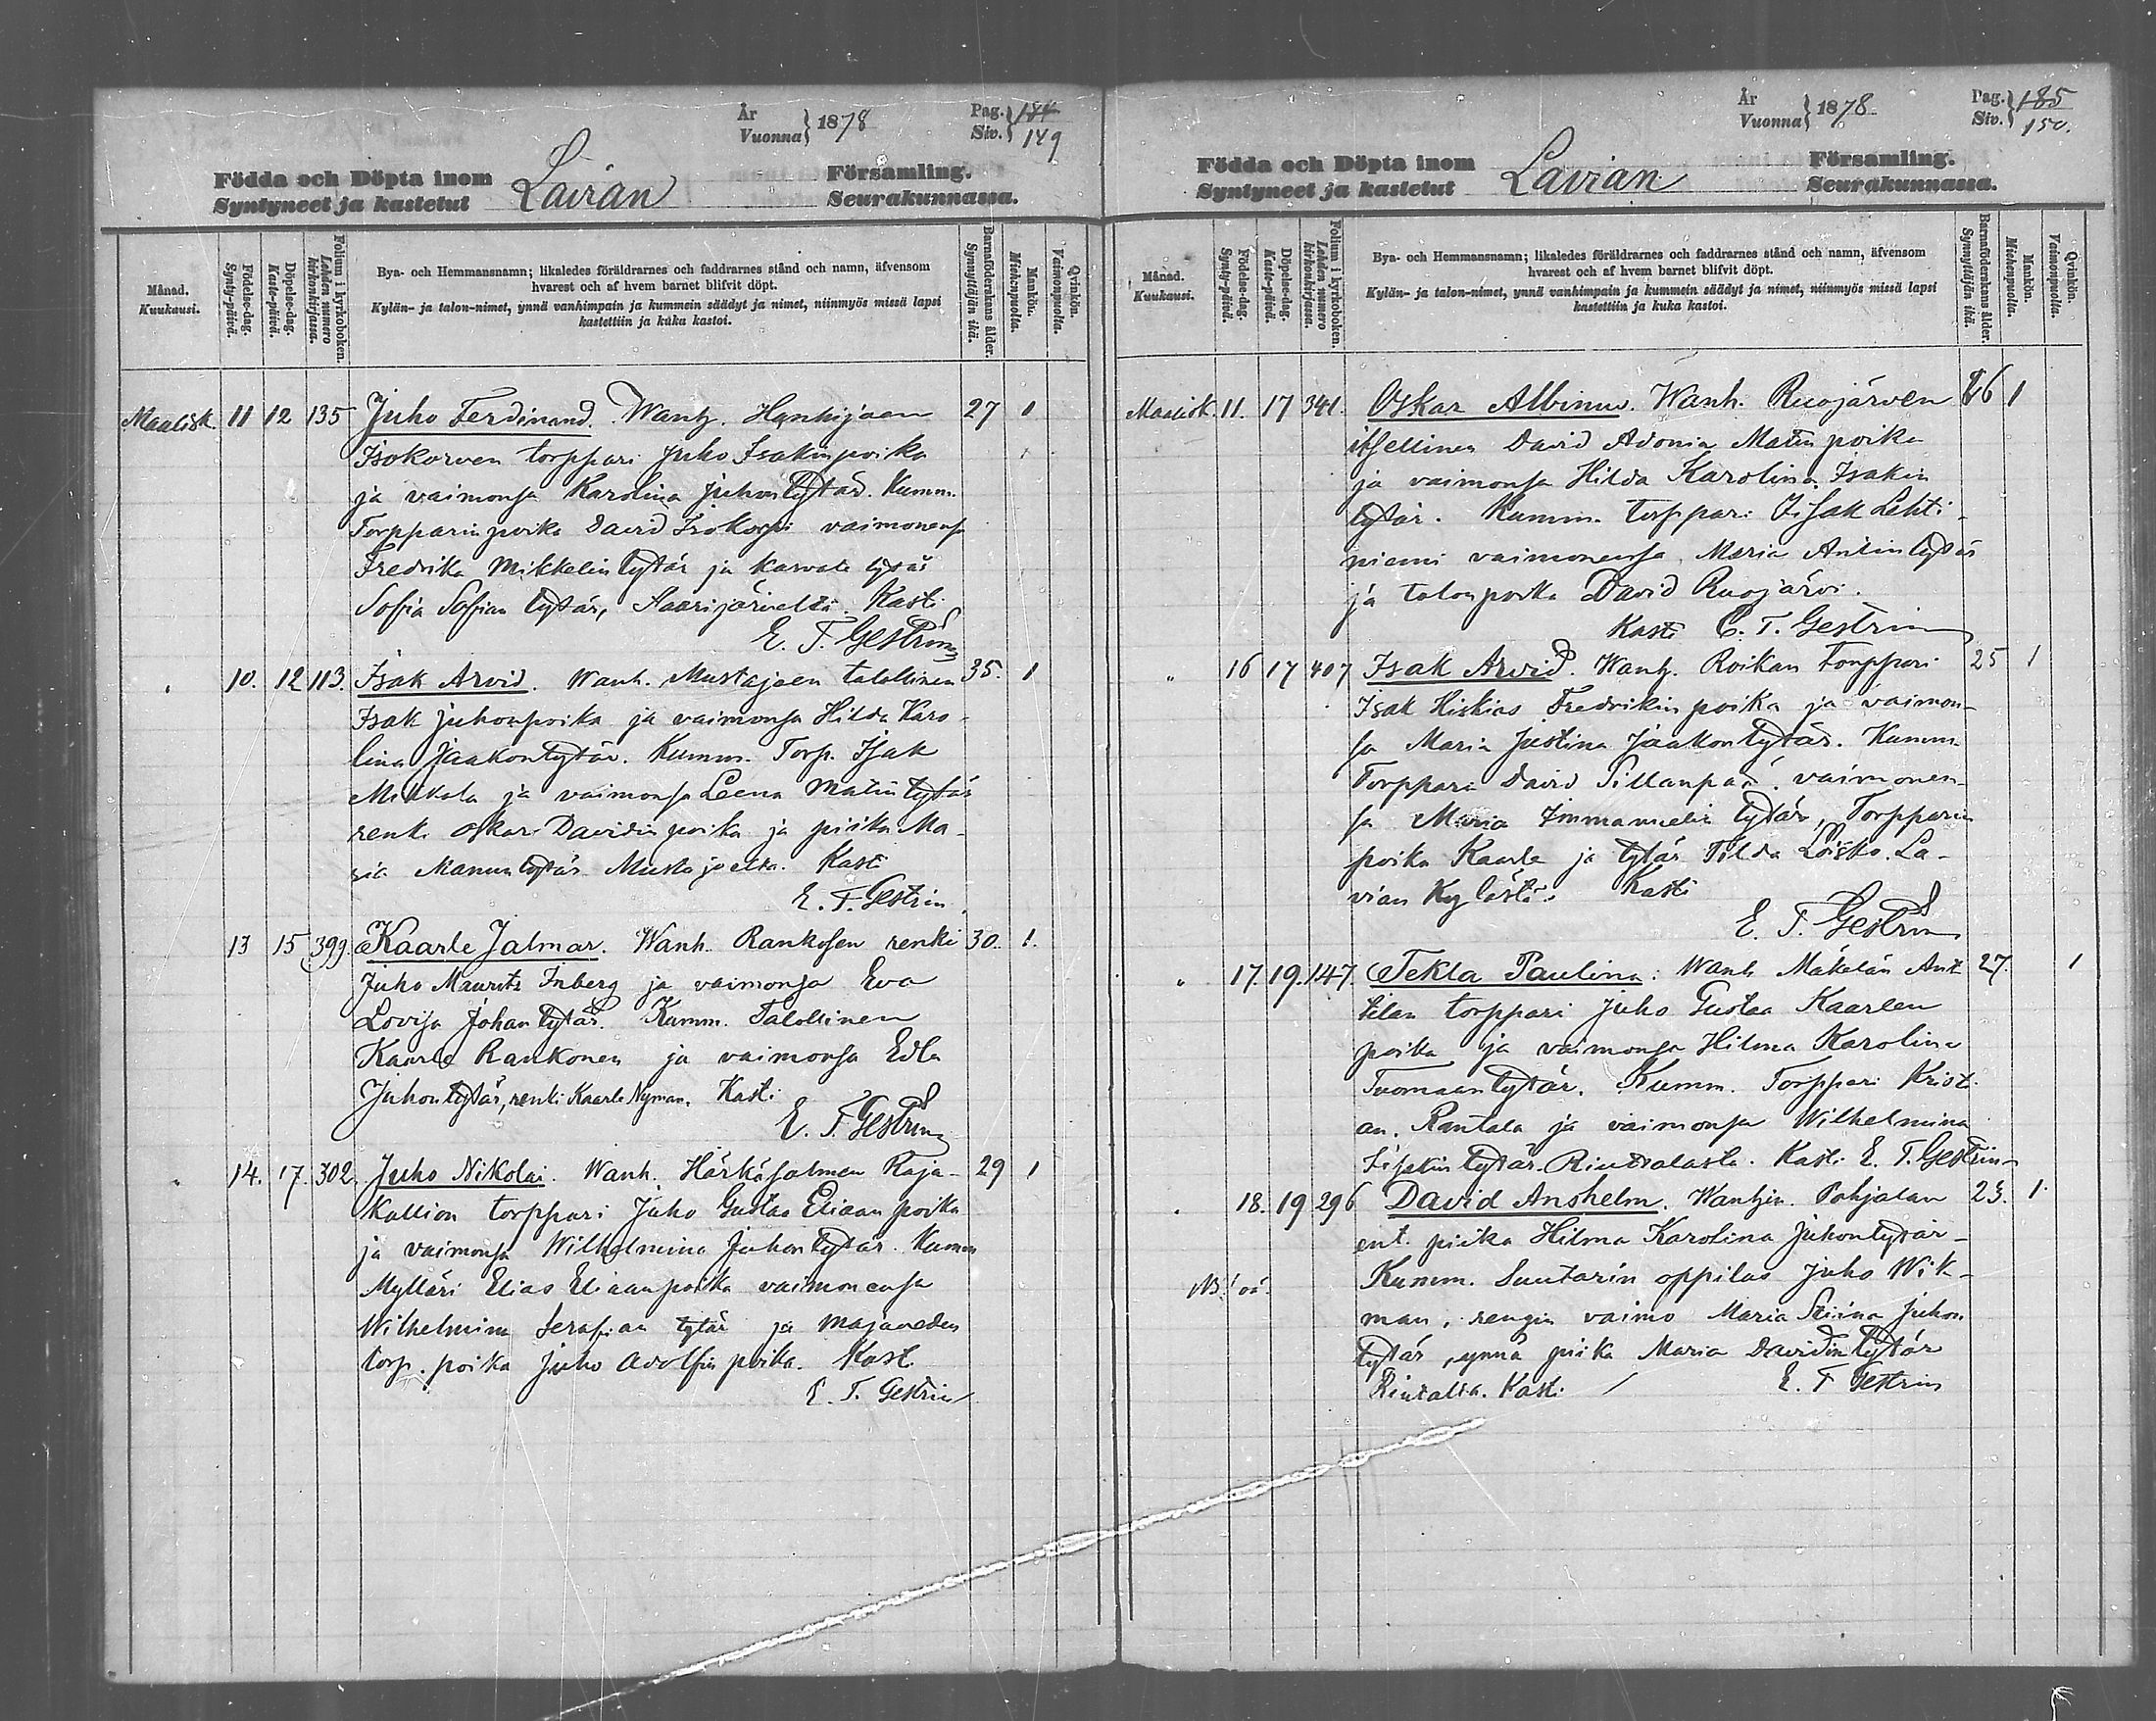 År
Vuonna } 1878
Pag.
Siv. } 184
149
Födda och Döpta inom
Syntyneet ja kastetut
Lavian
Församling.
Seurakunnassa.
Månad.
Kuukausi.
Födelse-dag.
Synty-päivä.
Döpelse-dag.
Kaste-päivä.
Folium i kyrkoboken.
Lehden numero kirkonkirjassa.
Bya- och Hemmansnamn; likaledes föräldrarnes och faddrarnes stånd och namn, äfvensom
hvarest och af hvem barnet blifvit döpt.
Kylän- ja talon-nimet, ynnä vanhimpain ja kummein säädyt ja nimet, niinmyös missä lapsi
kastettiin ja kuka kastoi.
Barnaföderskans ålder.
Synnyttäjän ikä.
Mankön.
Miehenpuolta.
Qvinkön.
Vaimonpuolta.
Maalisk. 11 12 135 Juho Ferdinand. Wanh. Honkijoen 27 1
Isokorven torppari Juho Isakinpoika
ja vaimonsa Karolina Juhontytär. Kumm.
Torpparinpoika David Isokorpi vaimonensa
Fredrika Mikkelintytär ja tytär
Sofia Sofian tytär, Kasti
E. T. Gestrin
" 10. 12 113. Isak Arvid. Wanh. Mustajoen talollinen 35. 1
Isak Juhonpoika ja vaimonsa Hilda Karo-
lina Jaakontytär. Kumm. Torp. Isak
Mikkola ja vaimonsa Leena Matintytär
renki Oskari Davidinpoika ja piika Ma-
ria Manuntytär Mustajoelta. Kasti
E. T. Gestrin.
13 15 399. Kaarle Jalmar. Wanh. Rankosen renki 30. 1.
Juho Maurits Friberg ja vaimonsa Eva
Lovisa Johantytär. Kumm. Talollinen
Kaarle Rankonen ja vaimonsa Edla
Juhontytär, renki Kaarle Nyman. Kasti
E. T. Gestrin
" 14. 17. 302. Juho Nikolai. Wanh. Härkäsalmen Raja- 29 1
Kallion torppari Juho Gustav Eliaan poika
ja vaimonsa Wilhelmina Juhontytär. Kumm
Mylläri Elias Eliaanpoika vaimonensa
Wilhelmina Serafian tytär ja Majaveden
torp. poika Juho Adolfin poika. Kasti
E. T. Gestrin
År
Vuonna } 1878
Pag.
Siv. } 185
150.
Födda och Döpta inom
Syntyneet ja kastetut
Lavian
Församling.
Seurakunnassa.
Månad.
Kuukausi.
Födelse-dag.
Synty-päivä.
Döpelse-dag.
Kaste-päivä.
Folium i kyrkoboken.
Lehden numero kirkonkirjassa.
Bya- och Hemmansnamn; likaledes föräldrarnes och faddrarnes stånd och namn, äfvensom
hvarest och af hvem barnet blifvit döpt.
Kylän- ja talon-nimet, ynnä vanhimpain ja kummein säädyt ja nimet, niinmyös missä lapsi
kastettiin ja kuka kastoi.
Barnaföderskans ålder.
Synnyttäjän ikä.
Mankön.
Miehenpuolta.
Qvinkön.
Vaimonpuolta.
Maalisk. 11. 17 341. Oskar Albinus. Wanh. Ruojärven 26 1
itsellinen David Adonia Matin poika
ja vaimonsa Hilda Karolina Isakin
tytär. Kumm. torppari Iisak Lehti-
niemi vaimonensa Maria Antintytär
ja talonpoika David Ruojärvi.
Kasti E. T. Gestrin
" 16 17 407 Isak Arvid. Wanh. Roikan torppari 25 1
Isak Hiskias Fredrikin poika ja vaimon-
sa Maria Justina Jaakontytär. Kumm.
Torppari David Sillanpää, vaimonen-
sa Maria Immanuelin tytär, Torpparin
poika Kaarle ja tytär Tilda Loisko. La-
vian Kylästä. Kasti
E. T. Gestrin
" 17. 19. 147. Tekla Paulina: Wanh Mäkelän Ant 27. 1
tilan torppari Juho Gustaa Kaarlen
poika ja vaimonsa Hilma Karolina
Tuomaantytär. Kumm. Torppari Kristi-
an. Rantala ja vaimonsa Wilhelmina
Iisakin tytär. Riutsalasta. Kasti E. T. Gestrin
" 18. 19 296 David Anshelm. Wanhin. Pohjalan 23. 1.
ent. piika Hilma Karolina Juhontytär-
NB! oä. Kumm. Suutarin oppilas Juho Wik-
man, rengin vaimo Maria Stiina Juhon
tytär, ynnä piika Maria Davidintytär
Kasti E. T. Gestrin